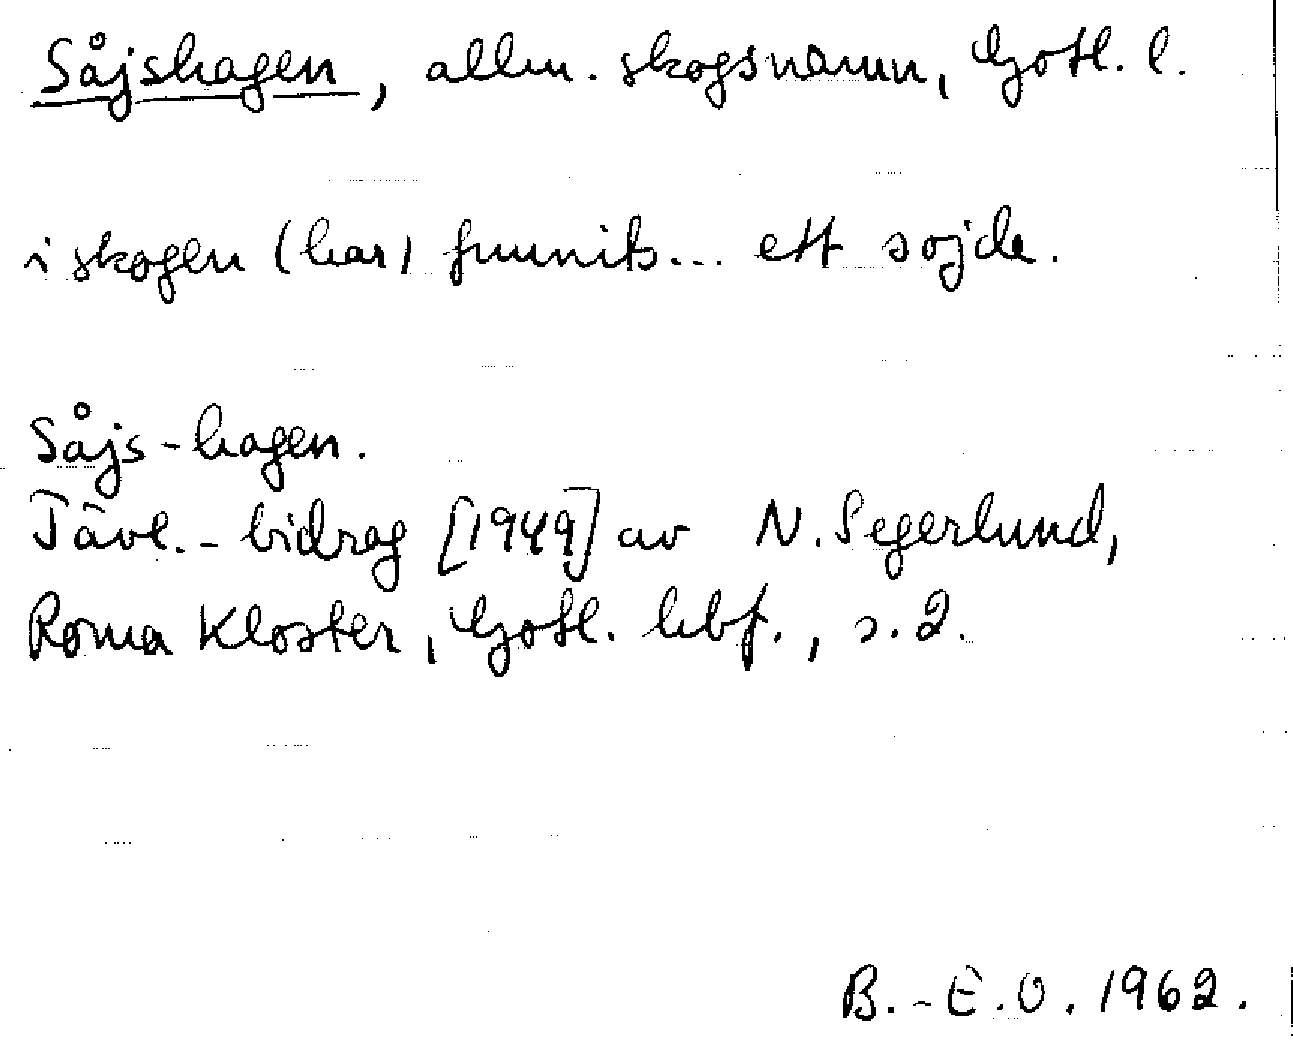 Såjshagen, allm. skogsnamn, Gotl. l.
i skogen (har) funnits... ett sojde.
Såjs-hagen.
Tävl.-bidrag [1949] av N. Segerlund,
Roma Kloster, Gotl. hbf., s. 2.
B.-E.O. 1962.